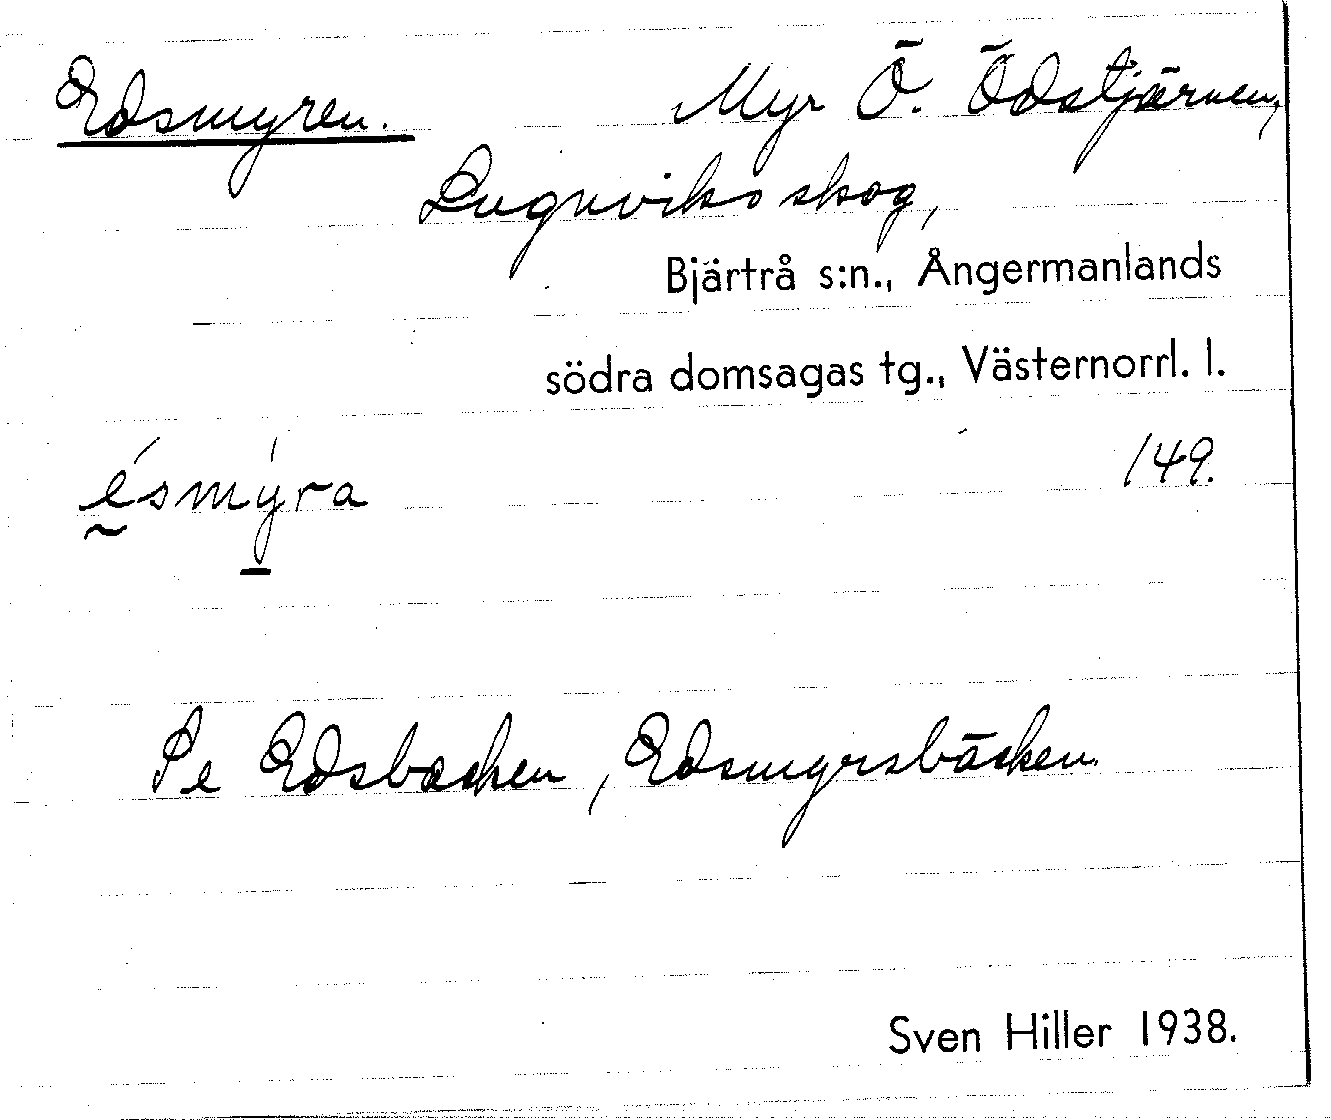 Edsmyren. Myr Ö. Ödstjärnen,
Lugnviks skog,
Bjärtrå s:n., Ångermanlands
södra domsagas tg., Västernorrl. l.
ésmýra 149.
Se Edsbacken, Edsmyrsbäcken.
Sven Hiller 1938.